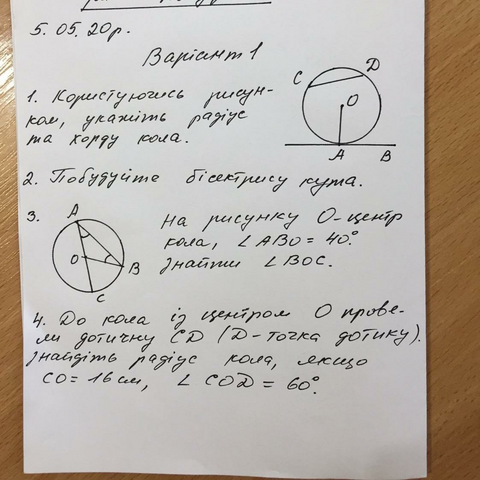 5. 05. 20р.
Варіант 1
1. Користуючись рисун-
ком, укажіть радіус
та хорду кола.
C
D
O
A
B
2. Побудуйте бісектрису кута.
3.
A
O
B
C
На рисунку О-центр
кола, ∠ABO = 40°.
Знайти ∠BOC.
4. До кола із центром О прове-
ли дотичну CD (D-точка дотику).
Знайдіть радіус кола, якщо
CO = 16 см, ∠COD = 60°.